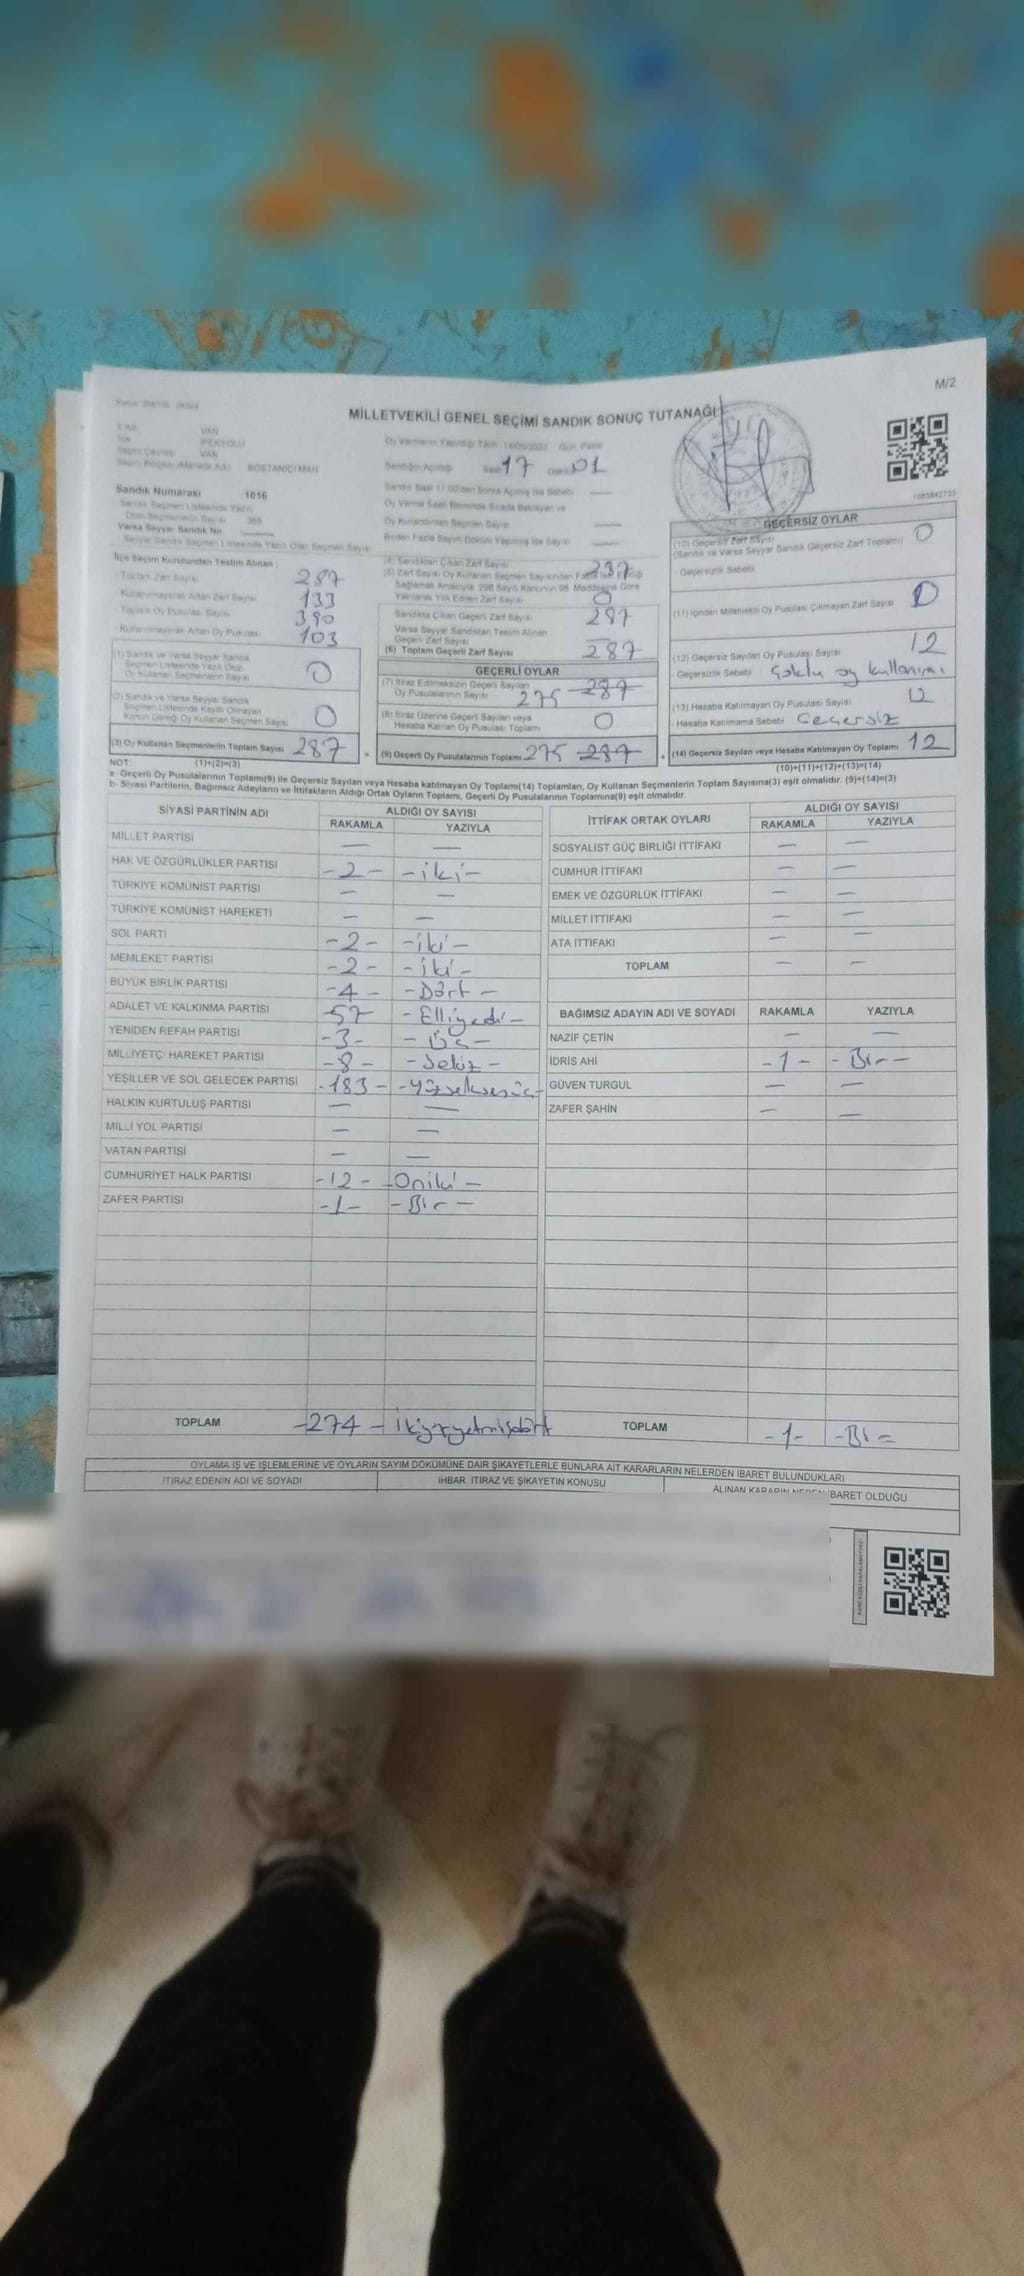 M/2
MİLLETVEKİLİ GENEL SEÇİMİ SANDIK SONUÇ TUTANAĞI
VAN
İPEKYOLU
VAN
BOSTANİÇİ MAH
Sandık Numarası : 1016
Sandığın Açılışı Saat 17 Dakika 01
1083842733
İlçe Seçim Kurulundan Teslim Alınan :
- Toplam Zarf Sayısı 287
- Kullanılmayarak Artan Zarf Sayısı 133
- Toplam Oy Pusulası Sayısı 390
- Kullanılmayarak Artan Oy Pusulası 103
(1) Sandık ve Varsa Seyyar Sandık Seçmen Listesinde Yazılı Olup Oy Kullanan Seçmenlerin Sayısı 0
(2) Sandık ve Varsa Seyyar Sandık Seçmen Listesinde Kayıtlı Olmayan Kanun Gereği Oy Kullanan Seçmen Sayısı 0
(3) Oy Kullanan Seçmenlerin Toplam Sayısı 287
(4) Sandıktan Çıkan Zarf Sayısı 287
Yakılarak Yok Edilen Zarf Sayısı 0
Sandıkta Çıkan Geçerli Zarf Sayısı 287
Varsa Seyyar Sandıktan Teslim Alınan Geçerli Zarf Sayısı
(6) Toplam Geçerli Zarf Sayısı 287
GEÇERLİ OYLAR
(7) İtiraz Edilmeksizin Geçerli Sayılan Oy Pusulalarının Sayısı 275 287
(8) İtiraz Üzerine Geçerli Sayılan veya Hesaba Katılan Oy Pusulası Toplamı 0
(9) Geçerli Oy Pusulalarının Toplamı 275 287
GEÇERSİZ OYLAR
(10) Geçersiz Zarf Sayısı 0
(Sandık ve Varsa Seyyar Sandık Geçersiz Zarf Toplamı)
- Geçersizlik Sebebi
(11) İçinden Milletvekili Oy Pusulası Çıkmayan Zarf Sayısı 0
(12) Geçersiz Sayılan Oy Pusulası Sayısı 12
- Geçersizlik Sebebi Çoklu oy kullanımı
(13) Hesaba Katılmayan Oy Pusulası Sayısı
- Hesaba Katılmama Sebebi Geçersiz
(14) Geçersiz Sayılan veya Hesaba Katılmayan Oy Toplamı 12
NOT: (1)+(2)=(3)
(10)+(11)+(12)+(13)=(14)
a- Geçerli Oy Pusulalarının Toplamı(9) ile Geçersiz Sayılan veya Hesaba katılmayan Oy Toplamı(14) Toplamları, Oy Kullanan Seçmenlerin Toplam Sayısına(3) eşit olmalıdır. (9)+(14)=(3)
b- Siyasi Partilerin, Bağımsız Adayların ve İttifakların Aldığı Ortak Oyların Toplamı, Geçerli Oy Pusulalarının Toplamına(9) eşit olmalıdır.
SİYASİ PARTİNİN ADI ALDIĞI OY SAYISI
RAKAMLA YAZIYLA
MİLLET PARTİSİ — —
HAK VE ÖZGÜRLÜKLER PARTİSİ -2- -iki-
TÜRKİYE KOMÜNİST PARTİSİ — —
TÜRKİYE KOMÜNİST HAREKETİ — —
SOL PARTİ -2- -iki-
MEMLEKET PARTİSİ -2- -iki-
BÜYÜK BİRLİK PARTİSİ -4- -Dört-
ADALET VE KALKINMA PARTİSİ -57- -Elliyedi-
YENİDEN REFAH PARTİSİ -3- -Üç-
MİLLİYETÇİ HAREKET PARTİSİ -8- -Sekiz-
YEŞİLLER VE SOL GELECEK PARTİSİ -183- -Yüzseksenüç-
HALKIN KURTULUŞ PARTİSİ — —
MİLLİ YOL PARTİSİ — —
VATAN PARTİSİ — —
CUMHURİYET HALK PARTİSİ -12- -Oniki-
ZAFER PARTİSİ -1- -Bir-
TOPLAM -274- ikiyüzyetmişdört
İTTİFAK ORTAK OYLARI ALDIĞI OY SAYISI
RAKAMLA YAZIYLA
SOSYALİST GÜÇ BİRLİĞİ İTTİFAKI — —
CUMHUR İTTİFAKI — —
EMEK VE ÖZGÜRLÜK İTTİFAKI — —
MİLLET İTTİFAKI — —
ATA İTTİFAKI — —
TOPLAM — —
BAĞIMSIZ ADAYIN ADI VE SOYADI RAKAMLA YAZIYLA
NAZİF ÇETİN — —
İDRİS AHİ -1- -Bir-
GÜVEN TURGUL — —
ZAFER ŞAHİN — —
TOPLAM -1- -Bir-
OYLAMA İŞ VE İŞLEMLERİNE VE OYLARIN SAYIM DÖKÜMÜNE DAİR ŞİKAYETLERLE BUNLARA AİT KARARLARIN NELERDEN İBARET BULUNDUKLARI
İTİRAZ EDENİN ADI VE SOYADI İHBAR, İTİRAZ VE ŞİKAYETİN KONUSU ALINAN KARARIN NEDEN İBARET OLDUĞU